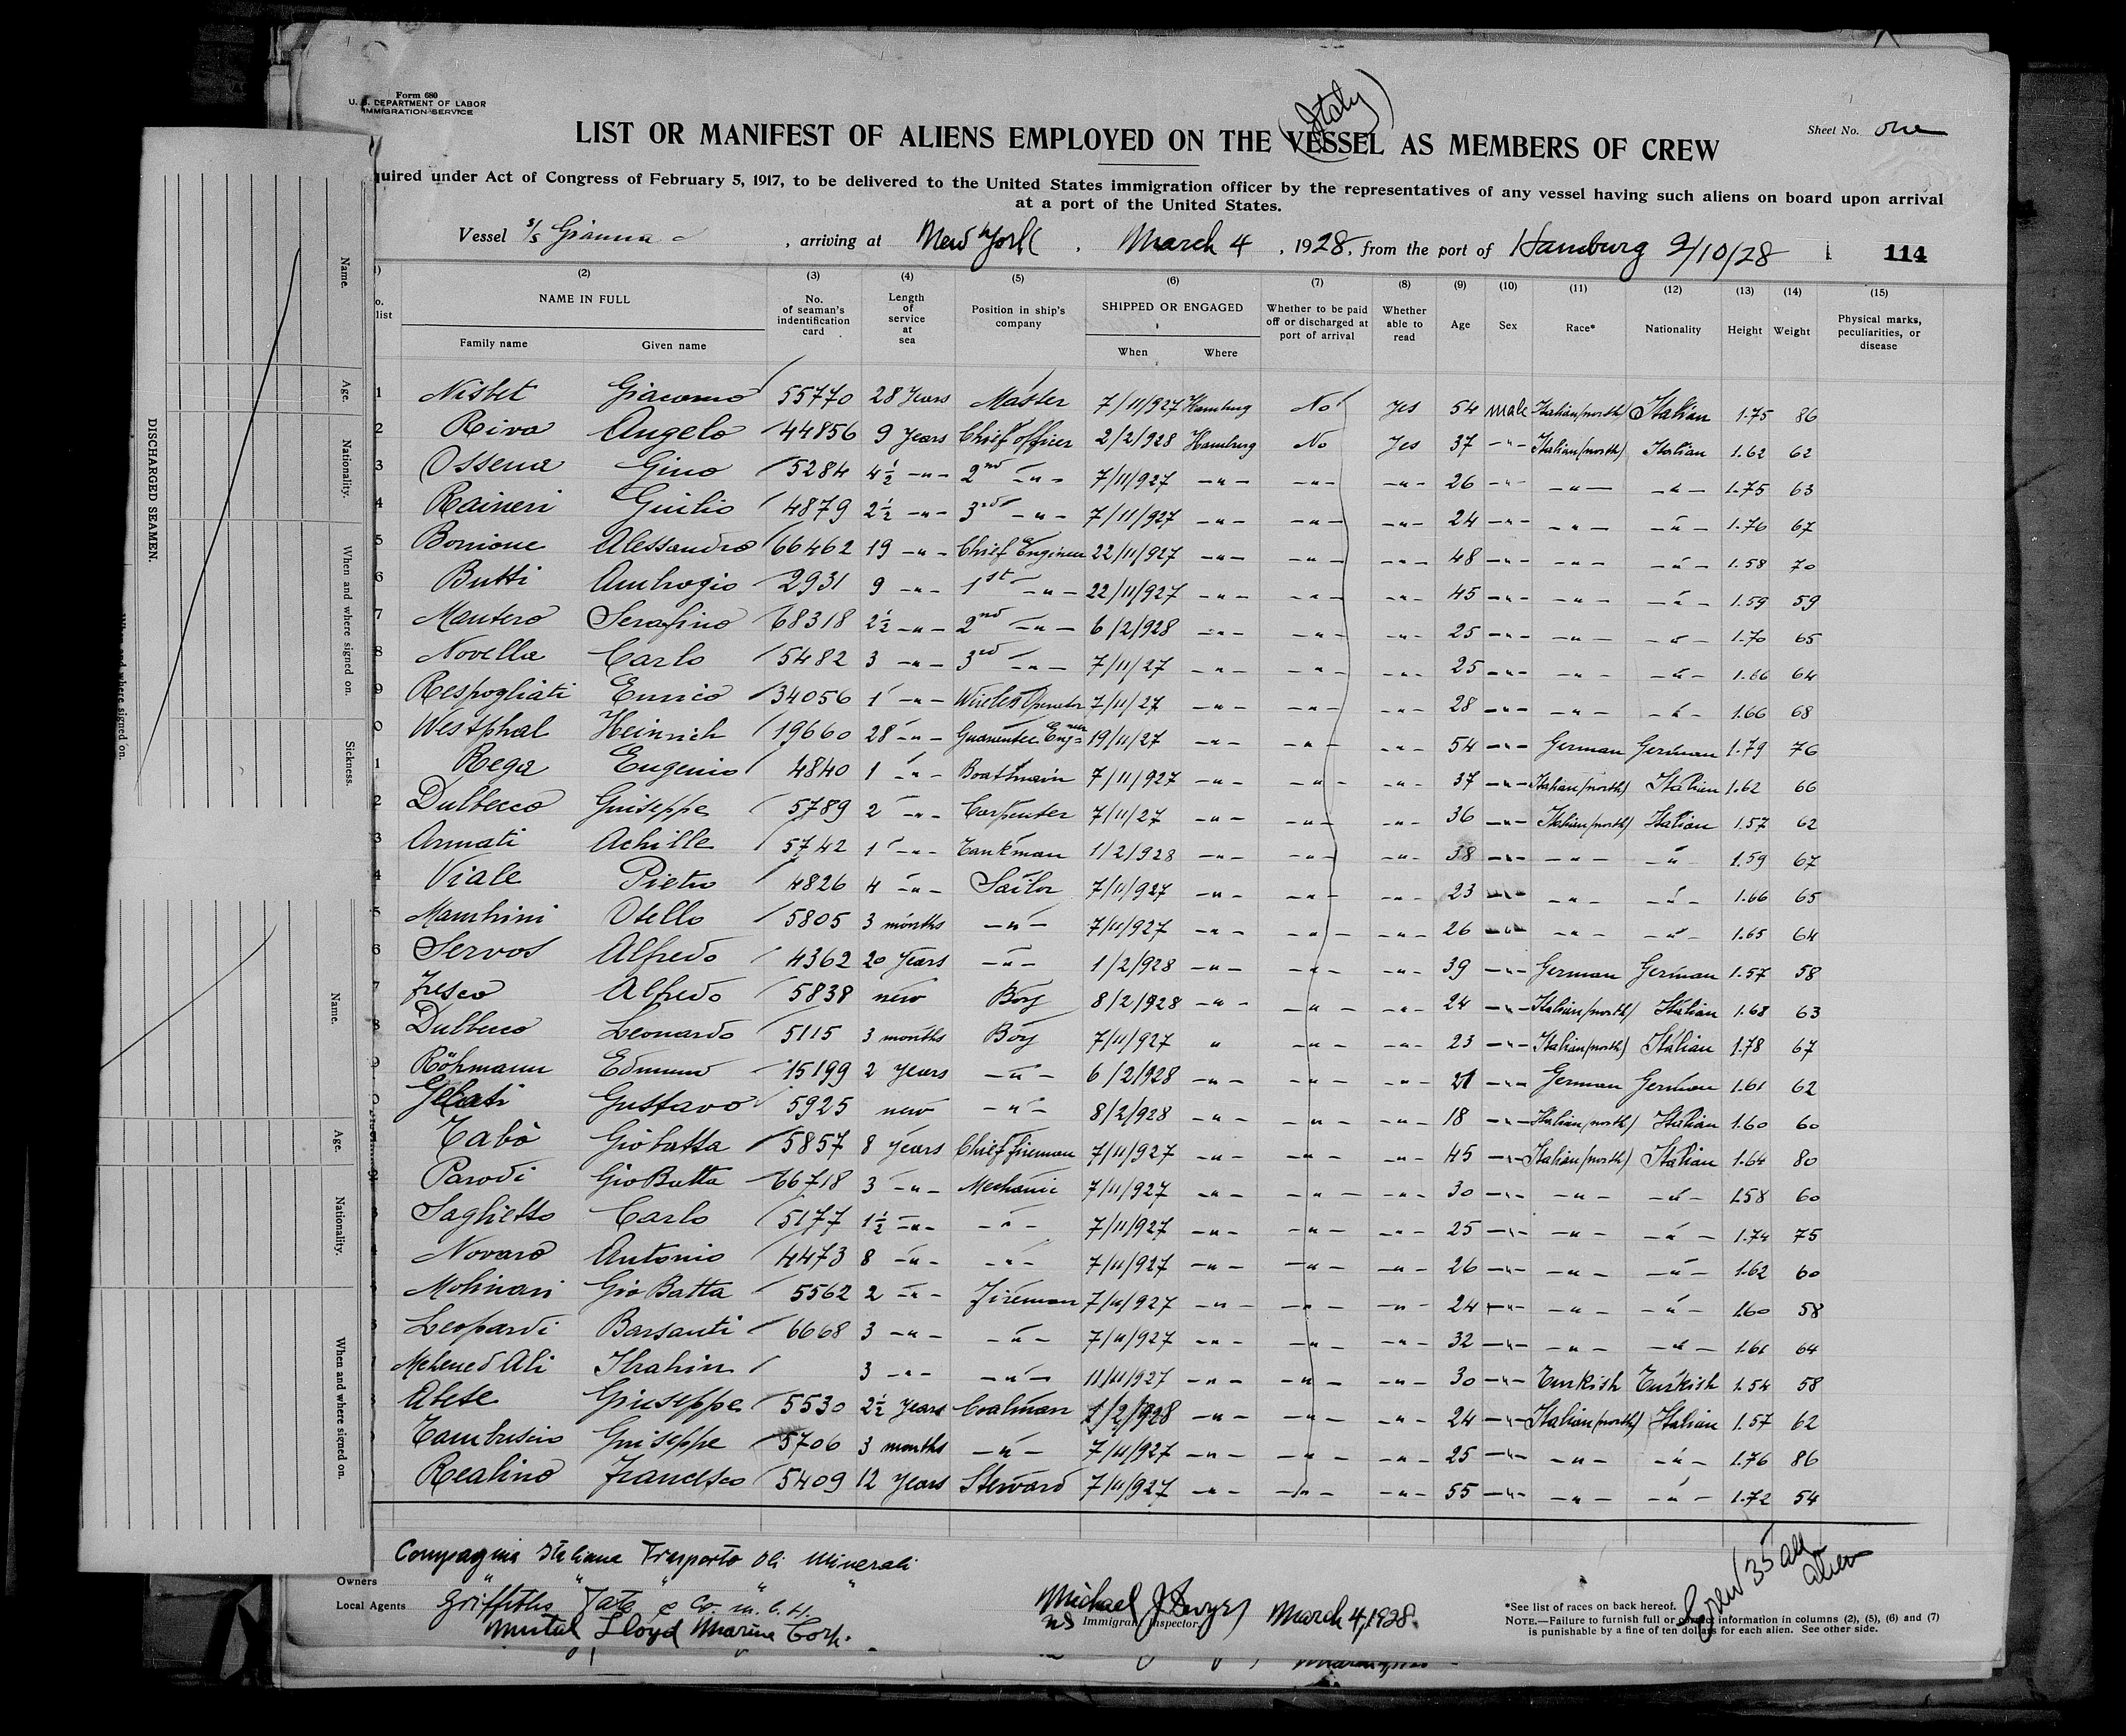 Form 680
U. S. DEPARTMENT OF LABOR
IMMIGRATION SERVICE
(Italy)
Sheet No. one
LIST OR MANIFEST OF ALIENS EMPLOYED ON THE VESSEL AS MEMBERS OF CREW
quired under Act of Congress of February 5, 1917, to be delivered to the United States immigration officer by the representatives of any vessel having such aliens on board upon arrival
at a port of the United States.
Vessel S/S Gianna , arriving at New York , March 4 , 1928, from the port of Hamburg 2/10/28 114
(2) (3) (4) (5) (6) (7) (8) (9) (10) (11) (12) (13) (14) (15)
list NAME IN FULL Family name Given name No. of seaman's indentification card Length of service at sea Position in ship's company SHIPPED OR ENGAGED When Where Whether to be paid off or discharged at port of arrival Whether able to read Age Sex Race* Nationality Height Weight Physical marks, peculiarities, or disease
1 Nisbet Giacomo 55770 28 Years Master 7/11/927 Hamburg No Yes 54 male Italian (north) Italian 1.75 86
2 Riva Angelo 44856 9 Years Chief officer 2/2/928 Hamburg No Yes 37 -"- Italian (north) Italian 1.62 62
3 Ossena Gino 5284 4½ -"- 2nd -"- 7/11/927 -"- -"- -"- 26 -"- -"- -"- 1.75 63
4 Raineri Guilio 4879 2½ -"- 3rd -"- 7/11/927 -"- -"- -"- 24 -"- -"- -"- 1.76 67
5 Bonione Alessandro 66462 19 -"- Chief Engineer 22/11/927 -"- -"- -"- 48 -"- -"- -"- 1.58 70
6 Butti Ambrogio 2931 9 -"- 1st -"- 22/11/927 -"- -"- -"- 45 -"- -"- -"- 1.59 59
7 Mantero Serafino 68318 2½ -"- 2nd -"- 6/2/928 -"- -"- -"- 25 -"- -"- -"- 1.70 65
8 Novella Carlo 5482 3 -"- 3rd -"- 7/11/27 -"- -"- -"- 25 -"- -"- -"- 1.66 64
9 Respogliati Enrico 34056 1 -"- Wireless Operator 7/11/27 -"- -"- -"- 28 -"- -"- -"- 1.66 68
0 Westphal Heinrich 19660 28 -"- Guarantee Eng. 19/11/27 -"- -"- -"- 54 -"- German German 1.79 76
1 Rega Eugenio 4840 1 -"- Boatswain 7/11/927 -"- -"- -"- 37 -"- Italian (north) Italian 1.62 66
2 Dulbecco Guiseppe 5789 2 -"- Carpenter 7/11/27 -"- -"- -"- 36 -"- Italian (north) Italian 1.57 62
3 Armati Achille 5742 1 -"- Tankman 1/2/928 -"- -"- -"- 38 -"- -"- -"- 1.59 67
4 Viale Pietro 4826 4 -"- Sailor 7/11/927 -"- -"- -"- 23 -"- -"- -"- 1.66 65
5 Otello 5805 3 months -"- 7/11/927 -"- -"- -"- 26 -"- -"- -"- 1.65 64
6 Servos Alfredo 4362 20 years -"- 1/2/928 -"- -"- -"- 39 -"- German German 1.57 58
7 Fresco Alfredo 5838 new Boy 8/2/928 -"- -"- -"- 24 -"- Italian (north) Italian 1.68 63
8 Dulbecco Leonardo 5115 3 months Boy 7/11/927 " -"- -"- 23 -"- Italian (north) Italian 1.78 67
9 Röhmann Edmund 15199 2 years -"- 6/2/928 -"- -"- -"- 21 -"- German German 1.61 62
0 Gustavo 5925 new -"- 8/2/928 -"- -"- -"- 18 -"- Italian (north) Italian 1.60 60
Tabò Gio batta 5857 8 years Chief fireman 7/11/927 -"- -"- -"- 45 -"- Italian (north) Italian 1.64 80
Parodi Gio Batta 66718 3 -"- Mechanic 7/11/927 -"- -"- -"- 30 -"- -"- -"- 1.58 60
Saglietto Carlo 5177 1½ -"- -"- 7/11/927 -"- -"- -"- 25 -"- -"- -"- 1.74 75
Novaro Antonio 4473 8 -"- -"- 7/11/927 -"- -"- -"- 26 -"- -"- -"- 1.62 60
Molinari Gio Batta 5562 2 -"- Fireman 7/11/927 -"- -"- -"- 24 -"- -"- -"- 1.60 58
Leopardi Barsanti 6668 3 -"- -"- 7/11/927 -"- -"- -"- 32 -"- -"- -"- 1.61 64
Mehened Ali Ibrahin 3 -"- -"- 11/11/927 -"- -"- -"- 30 -"- Turkish Turkish 1.54 58
Abete Giuseppe 5530 2½ years Coalman 1/2/928 -"- -"- -"- 24 -"- Italian (north) Italian 1.57 62
Tambusino Guiseppe 5706 3 months -"- 7/11/927 -"- -"- -"- 25 -"- -"- -"- 1.76 86
Realino Francesco 5409 12 years Steward 7/11/927 -"- -"- -"- 55 -"- -"- -"- 1.72 54
Compagnia Italiana Trasporto Oli Minerali
Owners " " " " "
Local Agents Griffiths Tate & Co.
Mutual Lloyd Marine Corp.
Michael J. March 4, 1928.
Immigrant Inspector.
Crew 35 all alien
*See list of races on back hereof.
NOTE.—Failure to furnish full or correct information in columns (2), (5), (6) and (7)
is punishable by a fine of ten dollars for each alien. See other side.
DISCHARGED SEAMEN.
Name.
Age.
Nationality.
When and where signed on.
Sickness.
Who and where signed on.
Name.
Age.
Nationality.
When and where signed on.